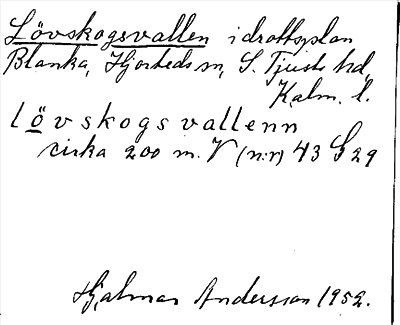 Lövskogsvallen idrottsplan
Blanka, Hjorteds sn, S. Tjusts hd,
Kalm. l.
lövskogsvallenn
cirka 200 m. V (n:r) 43 G 29
Hjalmar Andersson 1952.